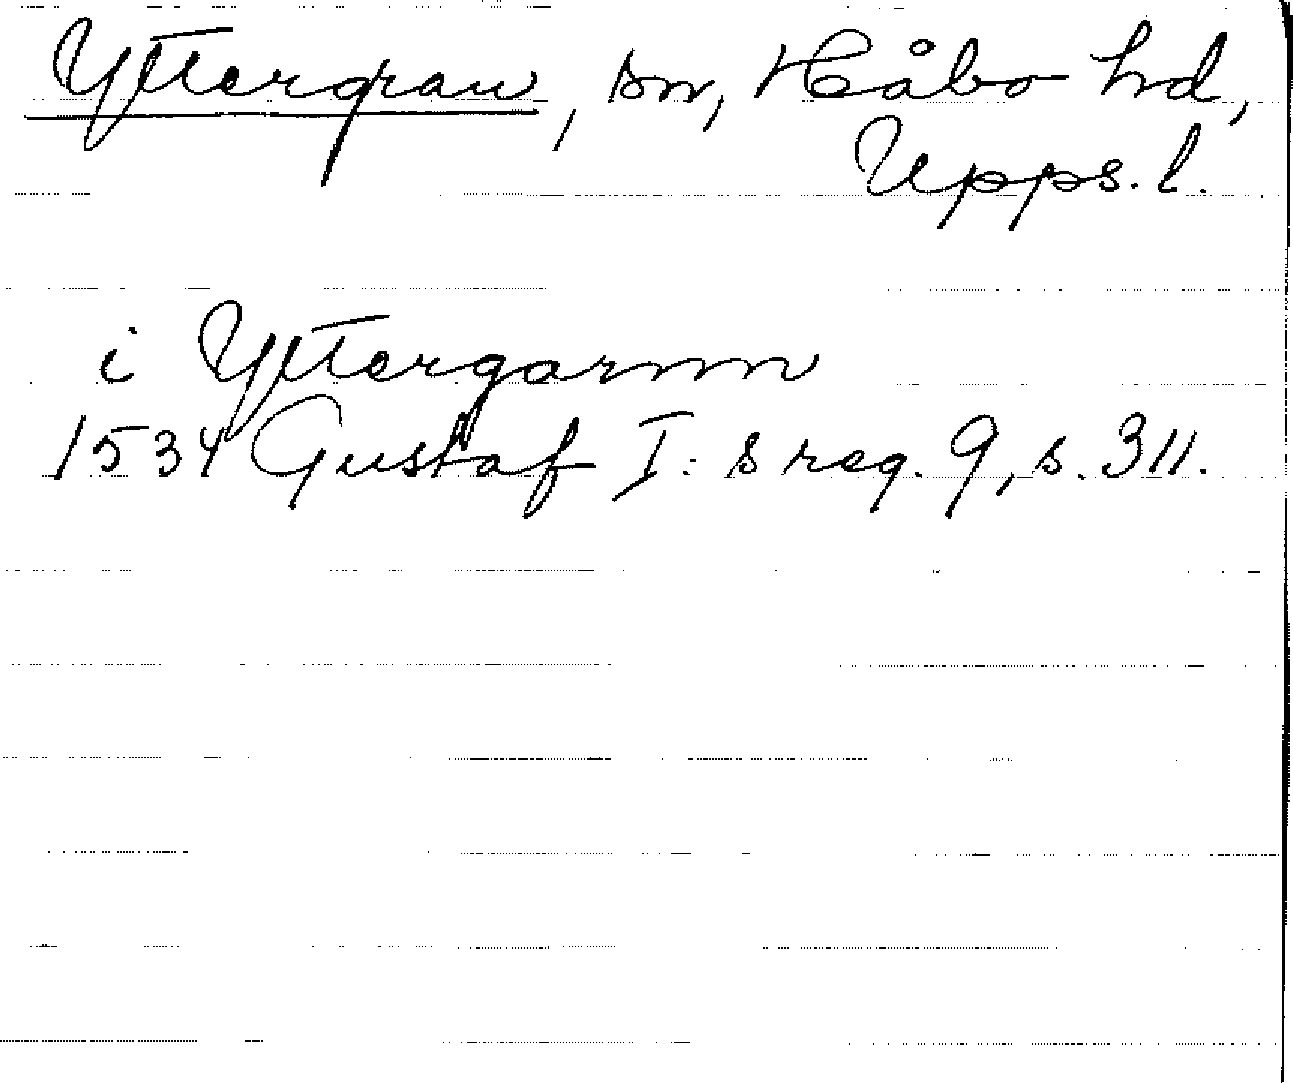 Yttergran, sn, Håbo hd,
Upps. l.
i Yttergarnn
1534 Gustaf I: s reg. 9, s. 311.